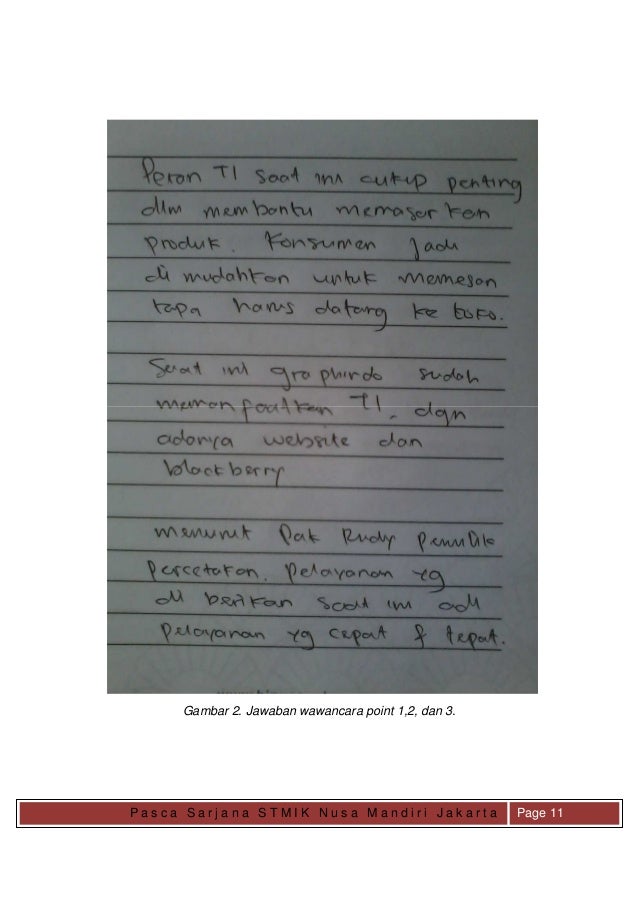 Peran TI saat ini cukup penting
dlm membantu memasarkan
produk. Konsumen jadi
di mudahkan untuk memesan
tapa harus datang ke toko.
Saat ini graphindo sudah
memanfaatkan TI, dgn
adanya website dan
blackberry
menurut Pak Rudy pemilik
Percetakan. Pelayanan yg
di berikan saat ini adl
Pelayanan yg cepat & tepat.
Gambar 2. Jawaban wawancara point 1,2, dan 3.
Pasca Sarjana STMIK Nusa Mandiri Jakarta Page 11